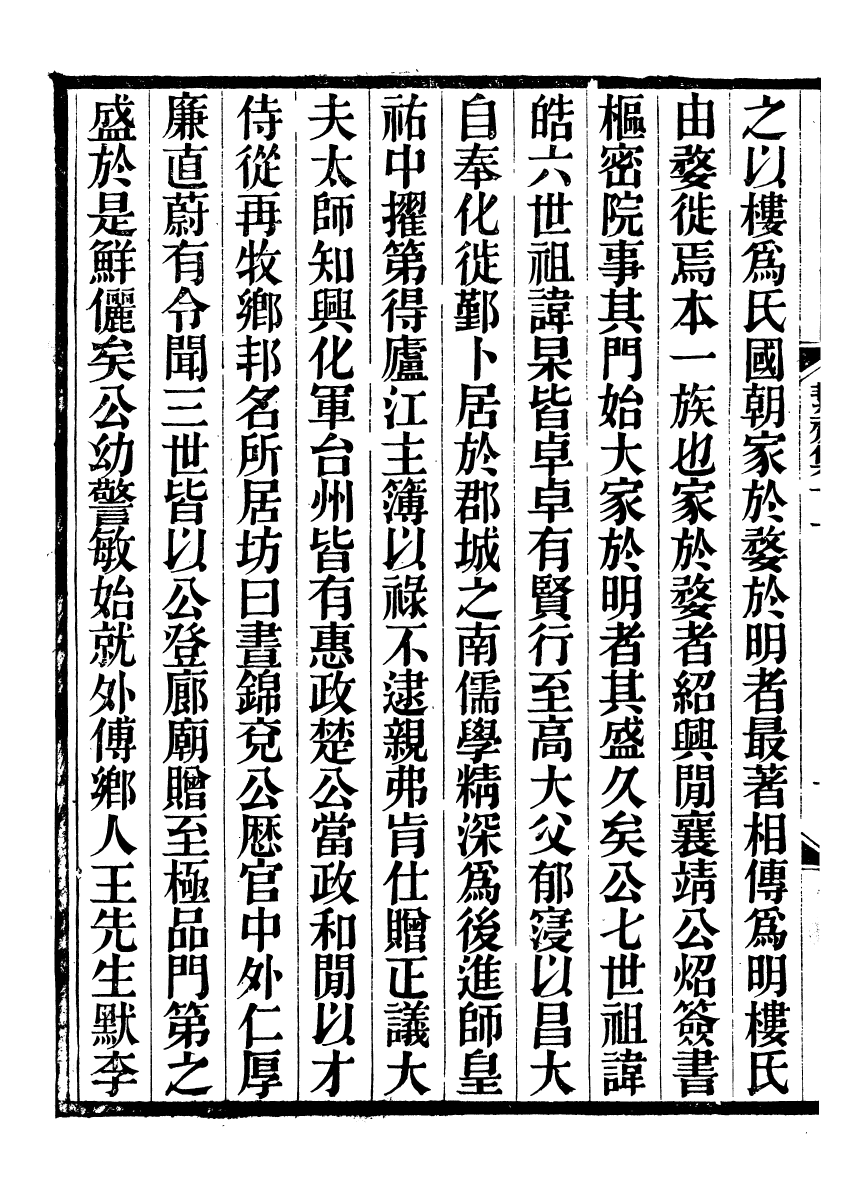 之以樓爲氏國朝家於婺於明者最著相傳爲明樓氏
由婺徙焉本一族也家於婺者紹興閒襄靖公炤簽書
樞密院事其門始大家於明者其盛久矣公七世祖諱
皓六世祖諱杲皆卓卓有賢行至高大父郁寖以昌大
自奉化徙鄞卜居於郡城之南儒學精深爲後進師皇
祐中擢第得廬江主簿以祿不逮親弗肯仕贈正議大
夫太師知興化軍台州皆有惠政楚公當政和閒以才
侍從再牧鄉邦名所居坊曰晝錦兗公歴官中外仁厚
廉直蔚有令聞三世皆以公登廊廟贈至極品門第之
盛於是鮮儷矣公幼警敏始就外傅鄉人王先生默李